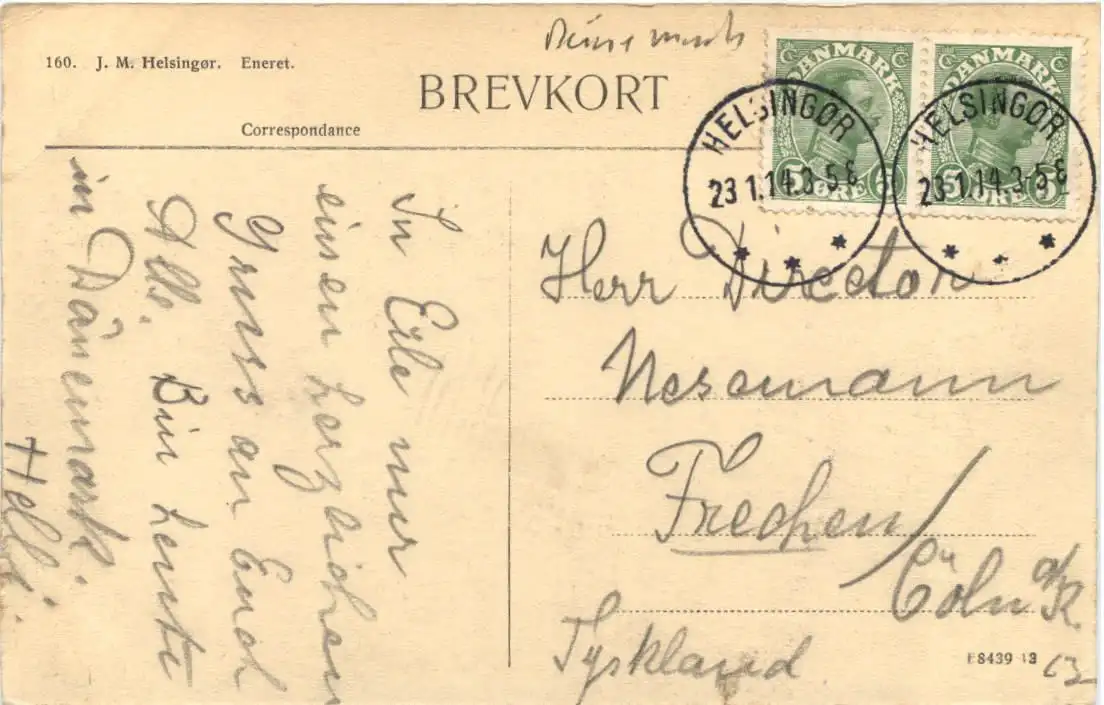 160. J. M. Helsingør. Eneret.
BREVKORT
Correspondance
DANMARK
5 ØRE 5
DANMARK
5 ØRE 5
HELSINGØR
23.1.14.3-5 E
HELSINGØR
23.1.14.3-5 E
In Eile nur
einen herzlichen
Gruss an Euch
Alle. Bin heute
in Dänemark.
Helli.
Herr Director
Nesemann
Frechen/
Cöln a/R.
Tyskland